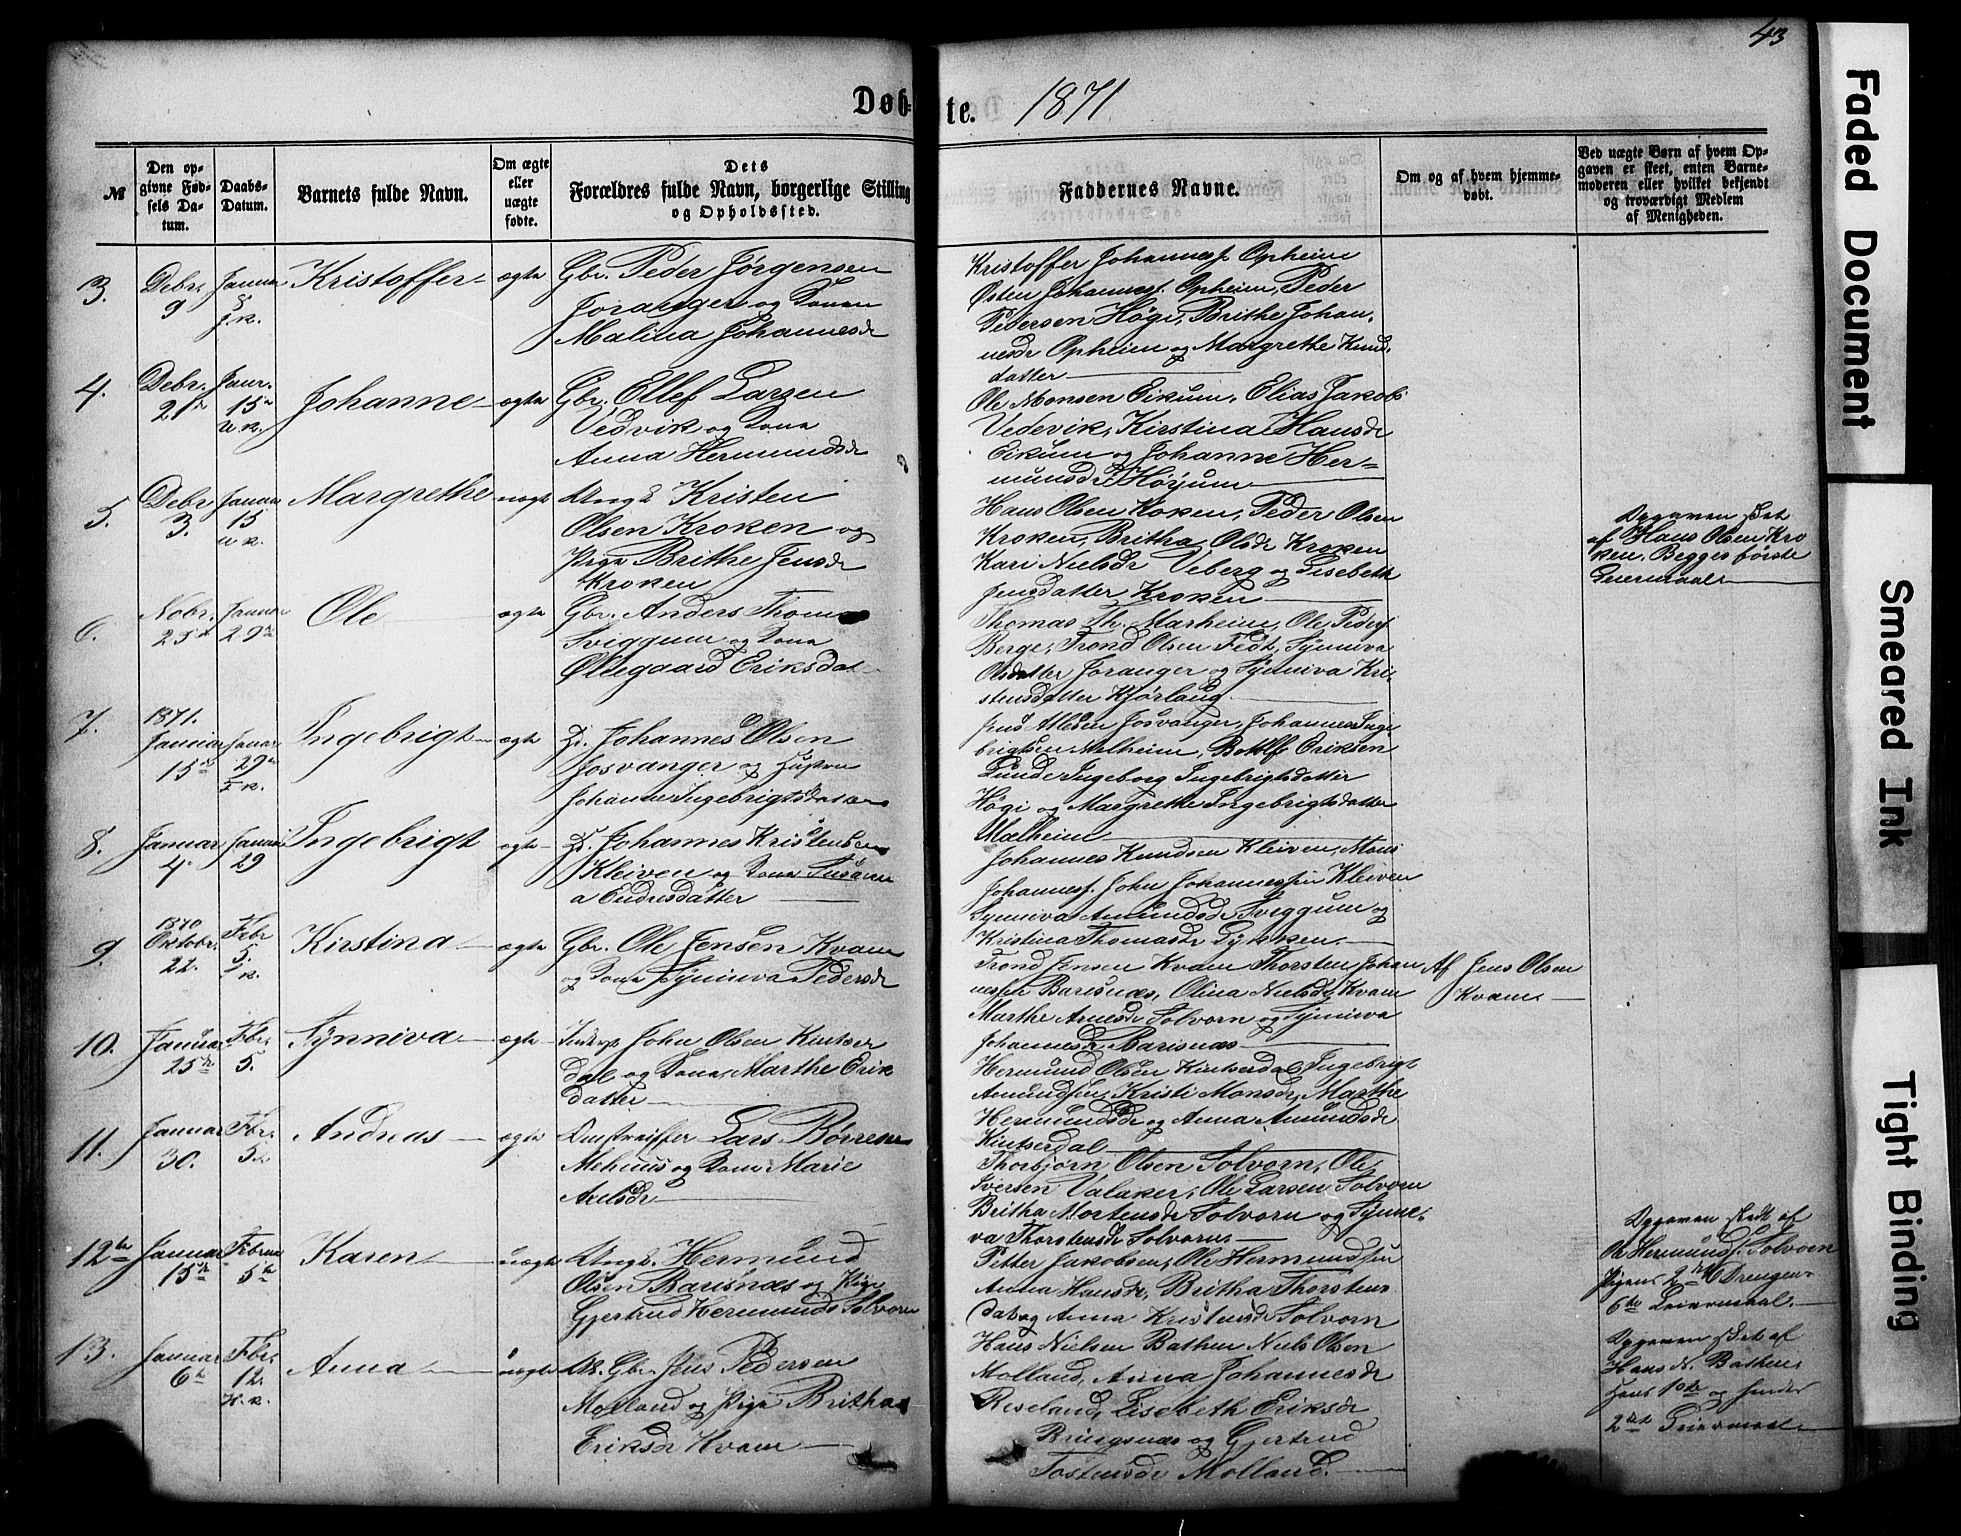 43
Døb-te. 1871
№
Den op-
givne Fød-
sels Da-
tum.
Daabs-
Datum.
Barnets fulde Navn.
Om ægte
eller
uægte
fødte.
Dets
Forældres fulde Navn, borgerlige Stilling
og Opholdssted.
Faddernes Navne.
Om og af hvem hjemme-
døbt.
Ved uægte Børn af hvem Op-
gaven er skeet, enten Barne-
moderen eller hvilket bekjendt
og troværdigt Medlem
af Menigheden.
3.
Debr.
9
Januar
8
J.k.
Kristoffer
ægte
Gbr. Peder Jørgensen
Joranger og Kona
Malina Johannesdr
Kristoffer Johannesf. Opheim
Østen Johannesf. Opheim, Peder
Pedersen Høgi, Brithe Johan-
nesdr Opheim og Margrethe Knud-
datter
4.
Debr.
21
Janr.
15
u.k.
Johanne
ægte
Gbr. Ellef Larsen
Vedvik og Kona
Anna Hermundsdr
Ole Monsen Eikum, Elias Jakobs
Vedevik, Kirstina Hansdr
Eikum og Johanne Her-
mundsdr Høyum
5.
Debr
3.
Januar
15
u.k.
Margrethe
uægte
Ungk. Kristen
Olsen Kroken og
Pige Brithe Jensdr
Kroken
Hans Olsen Kroken, Peder Olsen
Kroken, Britha Olsdr Kroken
Kari Nielsdr Veberg og Lisebeth
Jensdatter Kroken
Opgaven sket
af Hans Olsen Kro
ken, Begges første
Leiermaal
6.
Nobr.
25
Januar
29
Ole
ægte
Gbr. Anders Thom
Sviggum og Kona
Øllegaard Eriksdat
Thomas Th. Marheim, Ole Peders
Berge, Trond Olsen Fedt, Synniva
Olsdatter Joranger og Synniva Kri-
stensdatter Kjørlaug
7.
1871.
Januar
15
Januar
29
J.k.
Ingebrigt
ægte
Johannes Olsen
Josvanger og Hustru
Johanne Ingebrigtsdatter
Jens Olsen Josvanger, Johannes Inge
brigtsen Mælheim, Botolf Eriksen
Lunde Ingeborg Ingebrigtsdatter
Høgi og Margrethe Ingebrigtsdatter
Mælheim
8.
Januar
4
Januar
29
Ingebrigt
ægte
Johannes Kristensen
Kleiven og Kona Susann
a Endresdatter
Johannes Knudsen Kleiven, Mons
Johannesf. John Johannessen Kleiven
Synniva Amundsdr Sviggum og
Kristina Thomasdr Lykken
9.
1870
Oktobr.
22.
Febr
5.
J.k.
Kirstina
ægte
Gbr. Ole Jensen Kvam
og Kona Synniva Pedersdr
Trond Jensen Kvam Thorsten Johan
nessen Barsnæs, Olina Nielsdr Kvam
Marthe Arnesdr Solvorn og Synniva
Johannesdr Barsnæs
Af Jens Olsen
Kvam
10.
Januar
25
Fbr.
5.
Synniva
ægte
John Olsen Kintser
dal og Kona Marthe Erik
datter
Hermund Olsen Kintserdal, Ingebrigt
Amundsen, Kristi Monsdr, Marthe
Hermundsdr og Anna Amundsdr
Kintserdal
11.
Januar
30.
Fbr.
5
Andreas
ægte
Lars Børresen
Mehuus og Kona Marie
Axelsdr
Thorbjørn Olsen Solvorn, Ole
Iversen Valaker, Ole Larsen Solvorn
Britha Mortensdr Solvorn og Synne-
va Thorstensdr Solvorn
12
Januar
15
Februar
5
Karen
uægte
Ungk. Hermund
Olsen Barsnæs og Pige
Gjertrud Hermunds Solvorn
Petter Jakobsen, Ole Hermundsen
Anna Hansdr, Britha Thorstens
dat og Anna Kristensdr Solvorn
Opgaven skeet af
Ole Hermunds. Solvorn
Pigens 2 Drengens
6te Leiermaal.
13.
Januar
6
Fbr.
12.
H.k.
Anna
uægte
Gbr. Jens Pedersen
Molland og Pige Britha
Eriksdr Kvam
Hans Nielsen Bathen Niels Olsen
Molland, Anna Johannesdr
Reseland, Lisebeth Eriksdr
Bringsnæs og Gjertrud
Tostensdr Molland.
Opgaven sket af
Hans N. Bathen,
Hans 1ste og hendes
2det Leiermaal
Faded Document
Smeared Ink
Tight Binding